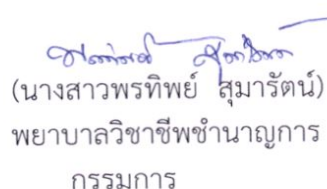 (นางสาวพรทิพย์ สุมารัตน์)
พยาบาลวิชาชีพชำนาญการ
กรรมการ